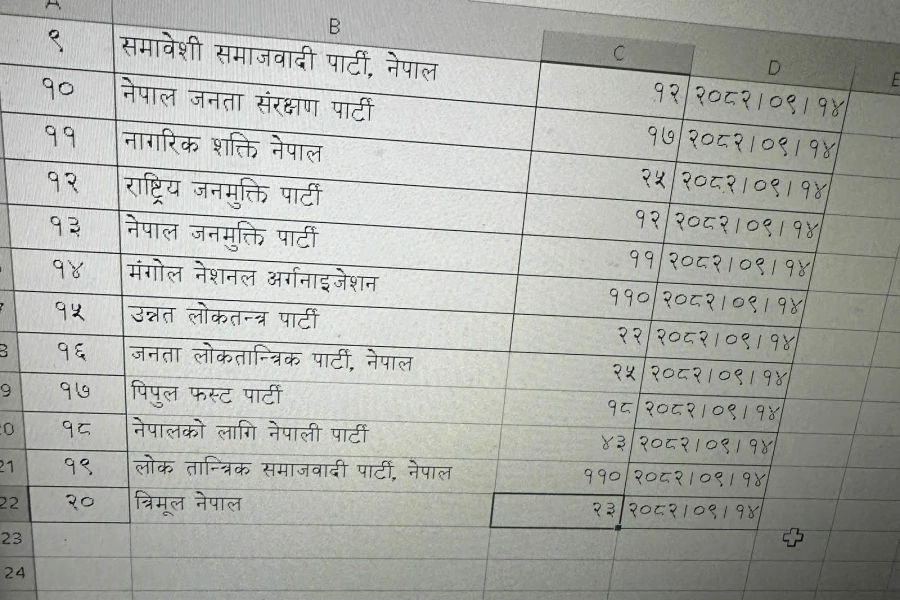 A B C D E
९ समावेशी समाजवादी पार्टी, नेपाल १२ २०८२।०९।१४
१० नेपाल जनता संरक्षण पार्टी १७ २०८२।०९।१४
११ नागरिक शक्ति नेपाल २५ २०८२।०९।१४
१२ राष्ट्रिय जनमुक्ति पार्टी १२ २०८२।०९।१४
१३ नेपाल जनमुक्ति पार्टी ११ २०८२।०९।१४
१४ मंगोल नेशनल अर्गनाइजेशन ११० २०८२।०९।१४
१५ उन्नत लोकतन्त्र पार्टी २२ २०८२।०९।१४
१६ जनता लोकतान्त्रिक पार्टी, नेपाल २५ २०८२।०९।१४
9 १७ पिपुल फस्ट पार्टी १८ २०८२।०९।१४
१८ नेपालको लागि नेपाली पार्टी ४३ २०८२।०९।१४
21 १९ लोक तान्त्रिक समाजवादी पार्टी, नेपाल ११० २०८२।०९।१४
22 २० त्रिमूल नेपाल २३ २०८२।०९।१४
23
24